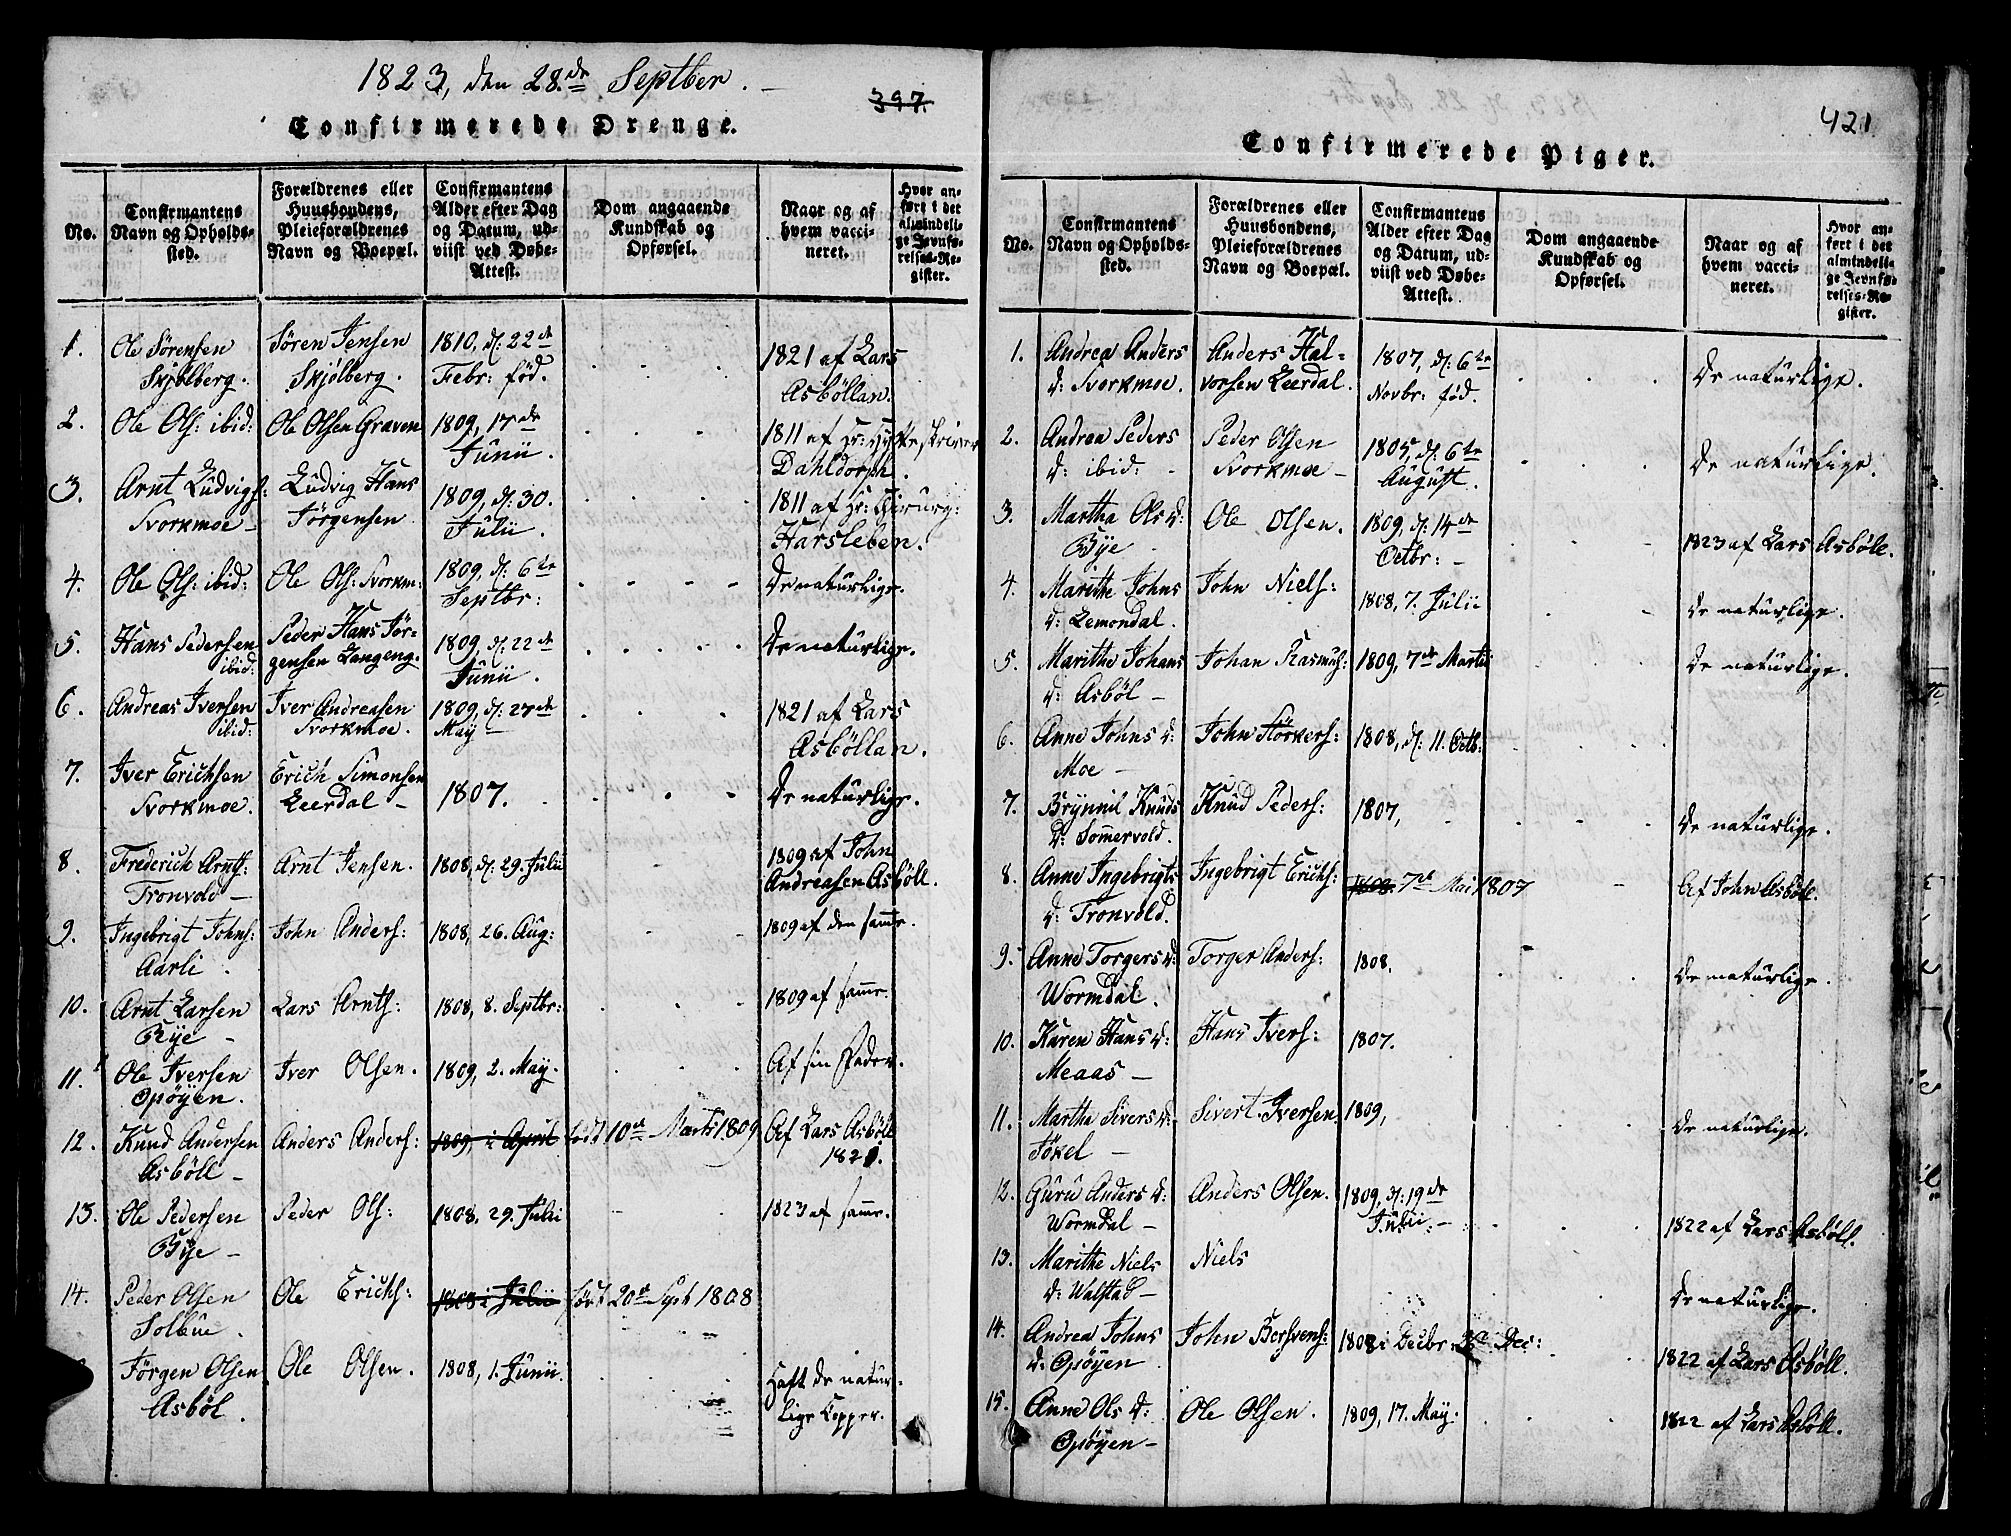 1823, den 28.de Septber. -
397.
Confirmerede Drenge.
No.
Confirmantens
Navn og Opholds-
sted.
Forældrenes eller
Huusbondens,
Pleieforældrenes
Navn og Boepæl.
Confirmantens
Alder efter Dag
og Datum, ud-
viist ved Døbe-
Attest.
Dom angaaende
Kundskab og
Opførsel.
Naar og af
hvem vacci-
neret.
Hvor an-
ført i det
almindeli-
ge Jevnfø-
relses-Re-
gister.
1. Ole Sörensen Sören Jensen 1810, d: 22de 1821 af Lars
Skjölberg. Skjölberg. Febr: fød. Asböllan.
2. Ole Ols: ibid: Ole Olsen Graven 1809, 17de 1811 af Hr:
Junii. Dahldorph.
3. Arnt Ludvigs: Ludvig Hans 1809, d: 30. 1811 af Hr: Chirurg:
Svorkmoe - Jörgensen Julii. Harsleben.
4. Ole Ols: ibid: Ole Ols: Svorkm: 1809, d: 6te De naturlige.
Septbr:
5. Hans Pedersen Peder Hans Jör- 1809, d: 22de De naturlige.
ibid: gensen Langeng. Junii.
6. Andreas Iversen Iver Andreasen 1809, d: 27de 1821 af Lars
ibid: Svorkmoe. May - Asböllan.
7. Iver Erichsen Erich Simonsen 1807. De naturlige.
Svorkmoe. Leerdal -
8. Frederich Arnts: Arnt Jensen. 1808, d: 29. Julii 1809 af John
Tronvold - Andreasen Asböll.
9. Ingebrigt Johns: John Anders: 1808, 26. Aug: 1809 af den samme.
Aarli.
10. Arnt Larsen Lars Arnts: 1808, 8. Septbr: 1809 af samme.
Bye -
11. Ole Iversen Iver Olsen. 1809, 2. May. Af sin Fader.
Opöyen.
12. Knud Andersen Anders Anders: 1809, i April født 10de Marts 1809 Af Lars Asböll
Asböll - 1821.
13. Ole Pedersen Peder Ols: 1808, 29. Julii 1823 af samme.
Bye -
14. Peder Olsen Ole Erichs: 1808 i Julii født 20de Sept 1808
Solbue.
Jörgen Olsen Ole Olsen. 1808, 1. Junii. Haft de natur-
Asböl. lige Kopper.
421
Confirmerede Piger.
No.
Confirmantens
Navn og Opholds-
sted.
Forældrenes eller
Huusbondens,
Pleieforældrenes
Navn og Boepæl.
Confirmantens
Alder efter Dag
og Datum, ud-
viist ved Døbe-
Attest.
Dom angaaende
Kundskab og
Opførsel.
Naar og af
hvem vacci-
neret.
Hvor an-
ført i det
almindeli-
ge Jevnfø-
relses-Re-
gister.
1. Andrea Anders Anders Hal- 1807, d: 6te De naturlige.
d: Svorkmoe. vorsen Leerdal. Novbr: fød.
2. Andrea Peders Peder Olsen 1805, d: 6te De naturlige.
d: ibid: - Svorkmoe - August.
3. Martha Ols d: Ole Olsen. 1809, d: 14de 1823 af Lars Asböle.
Bye Octbr: -
4. Marithe Johns John Niels: 1808, 7. Julii De naturlige.
d: Lemondal.
5. Marithe Johans Johan Rasmus: 1809, 7de Martii De naturlige.
d: Asböl -
6. Anne Johns d: John Störkers: 1808, d: 11. Octb:
Moe -
7. Brynnil Knuds Knud Peders: 1807, De naturlige.
d: Sommervold.
8. Anne Ingebrigts Ingebrigt Erichs: 1808. 7de Mai 1807 Af John Asböll.
d: Tronvold.
9. Anne Torgers d: Torger Anders: 1808. De naturlige.
Wormdal.
10. Karen Hans d: Hans Ivers: 1807.
Meaas -
11. Martha Sivers d: Sivert Iversen 1809, De naturlige.
Jökel -
12. Guru Anders d: Anders Olsen. 1809, d: 19de 1822 af Lars Asböll.
Wormdal - Julii. -
13. Marithe Niels Niels De naturlige.
d: Walstad -
14. Andrea Johns John Bersvens: 1808 i Decbr Dec: 1822 af Lars Asböll.
d: Opöyen
15. Anne Ols d: Ole Olsen. 1809, 17. May. 1822 af Lars Asböll.
Opöyen -